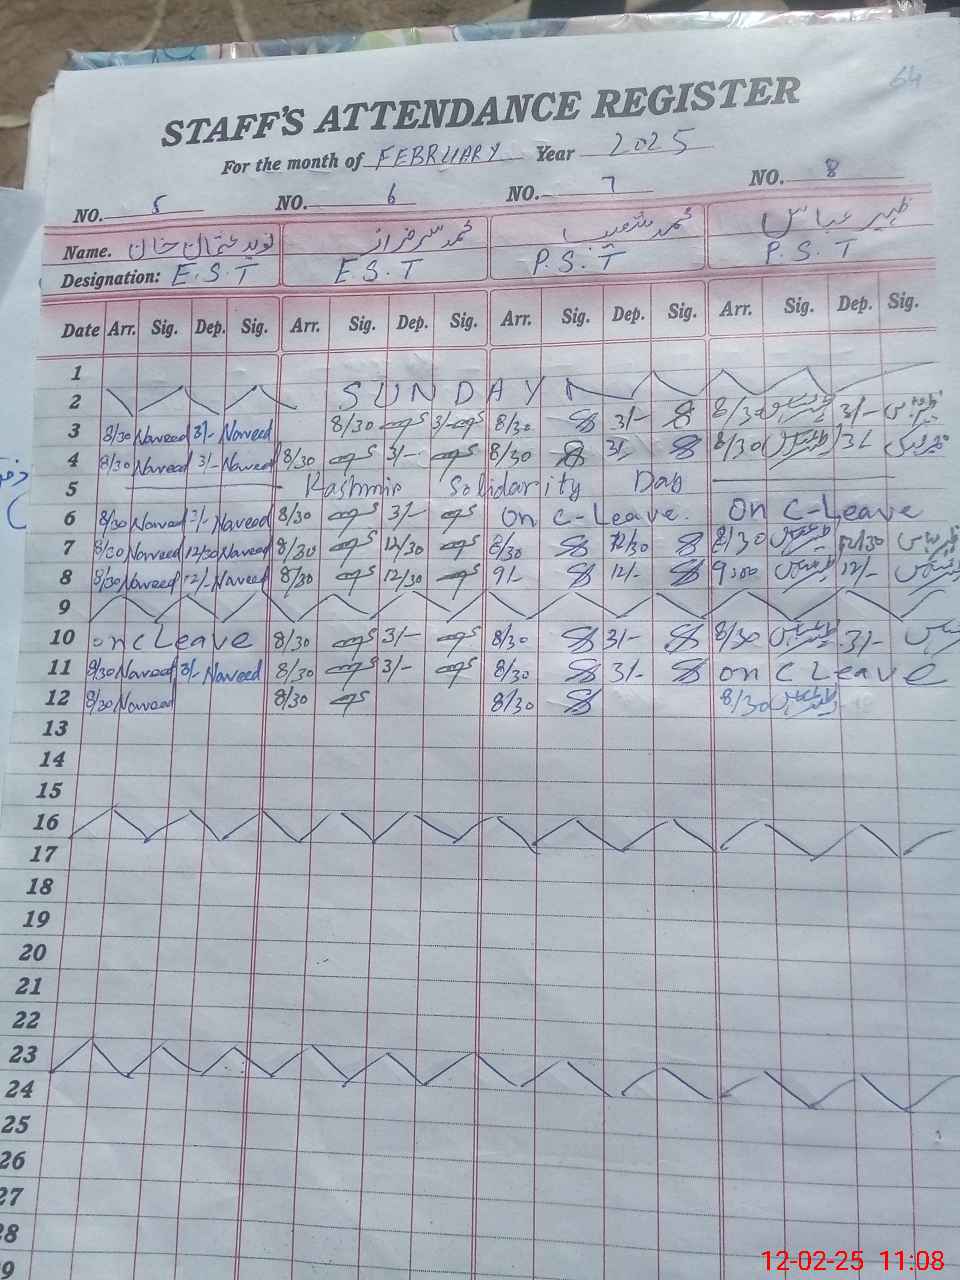 64
STAFF'S ATTENDANCE REGISTER
For the month of FEBRUARY Year 2025
NO. 5 NO. 6 NO. 7 NO. 8
Name. نوید عثمان خان محمد سرفراز محمد شعیب ظہیر عباس
Designation: E.S.T E.S.T P.S.T P.S.T
Date Arr. Sig. Dep. Sig. Arr. Sig. Dep. Sig. Arr. Sig. Dep. Sig. Arr. Sig. Dep. Sig.
1
2 SUNDAY
3 8/30 Naveed 3/- Naveed 8/30 3/- 8/30 3/- 8/30 3/-
4 8/30 Naveed 3/- Naveed 8/30 3/- 8/30 3/- 8/30 3/-
5 Kashmir Solidarity Day
6 8/30 Naveed 3/- Naveed 8/30 3/- On C-Leave. On C-Leave
7 8/30 Naveed 12/30 Naveed 8/30 12/30 8/30 12/30 8/30 12/30
8 8/30 Naveed 12/- Naveed 8/30 12/30 9/- 12/- 9:00 12/-
9
10 on c Leave 8/30 3/- 8/30 3/- 8/30 3/-
11 8/30 Naveed 3/- Naveed 8/30 3/- 8/30 3/- on c Leave
12 8/30 Naveed 8/30 8/30 8/30
13
14
15
16
17
18
19
20
21
22
23
24
25
26
27
28
9
12-02-25 11:08